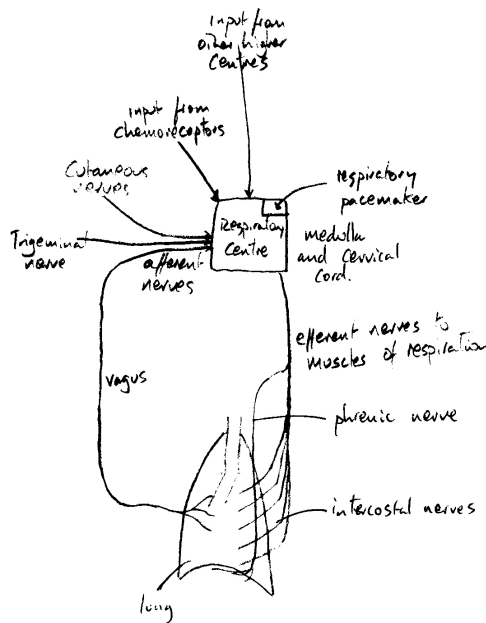 input from
other higher
centres
input from
chemoreceptors
Cutaneous
nerves
respiratory
pacemaker
Respiratory
Centre
Trigeminal
nerve
afferent
nerves
medulla
and cervical
Cord.
efferent nerves to
muscles of respiration
vagus
phrenic nerve
intercostal nerves
lung